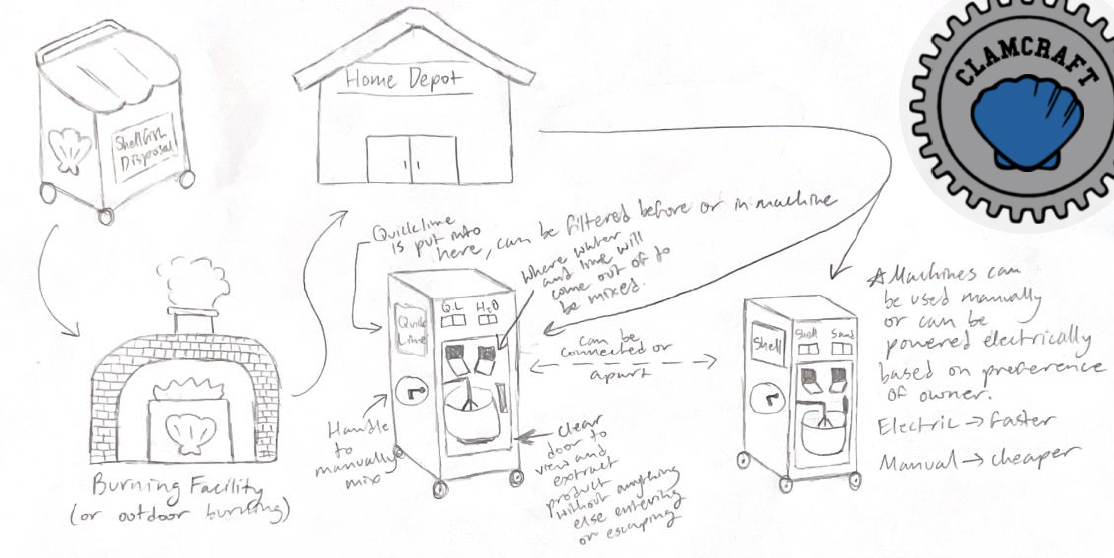 Shellfish
Disposal
Home Depot
CLAMCRAFT
Quicklime
is put into
here, can be filtered before or in machine
where water
and lime will
come out of to
be mixed.
Q.L H2O
Quick
Lime
Handle
to
manually
mix
clear
door to
view and
extract
product
without anything
else entering
or escaping
can be
connected or
apart
Shell
Shell Sand
Burning Facility
(or outdoor burning)
*Machines can
be used manually
or can be
powered electrically
based on preference
of owner.
Electric → faster
Manual → cheaper